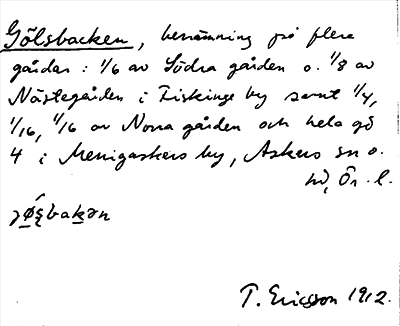 Gölsbacken, benämning på flere
gårdar: 1/6 av Södra gården o. 1/8 av
Nästegården i Fiskinge by samt 1/4,
1/16, 11/16 av Norra gården och hela gd
4 i Menigaskers by, Askers sn o.
hd, Ör. l.
T. Ericsson 1912.